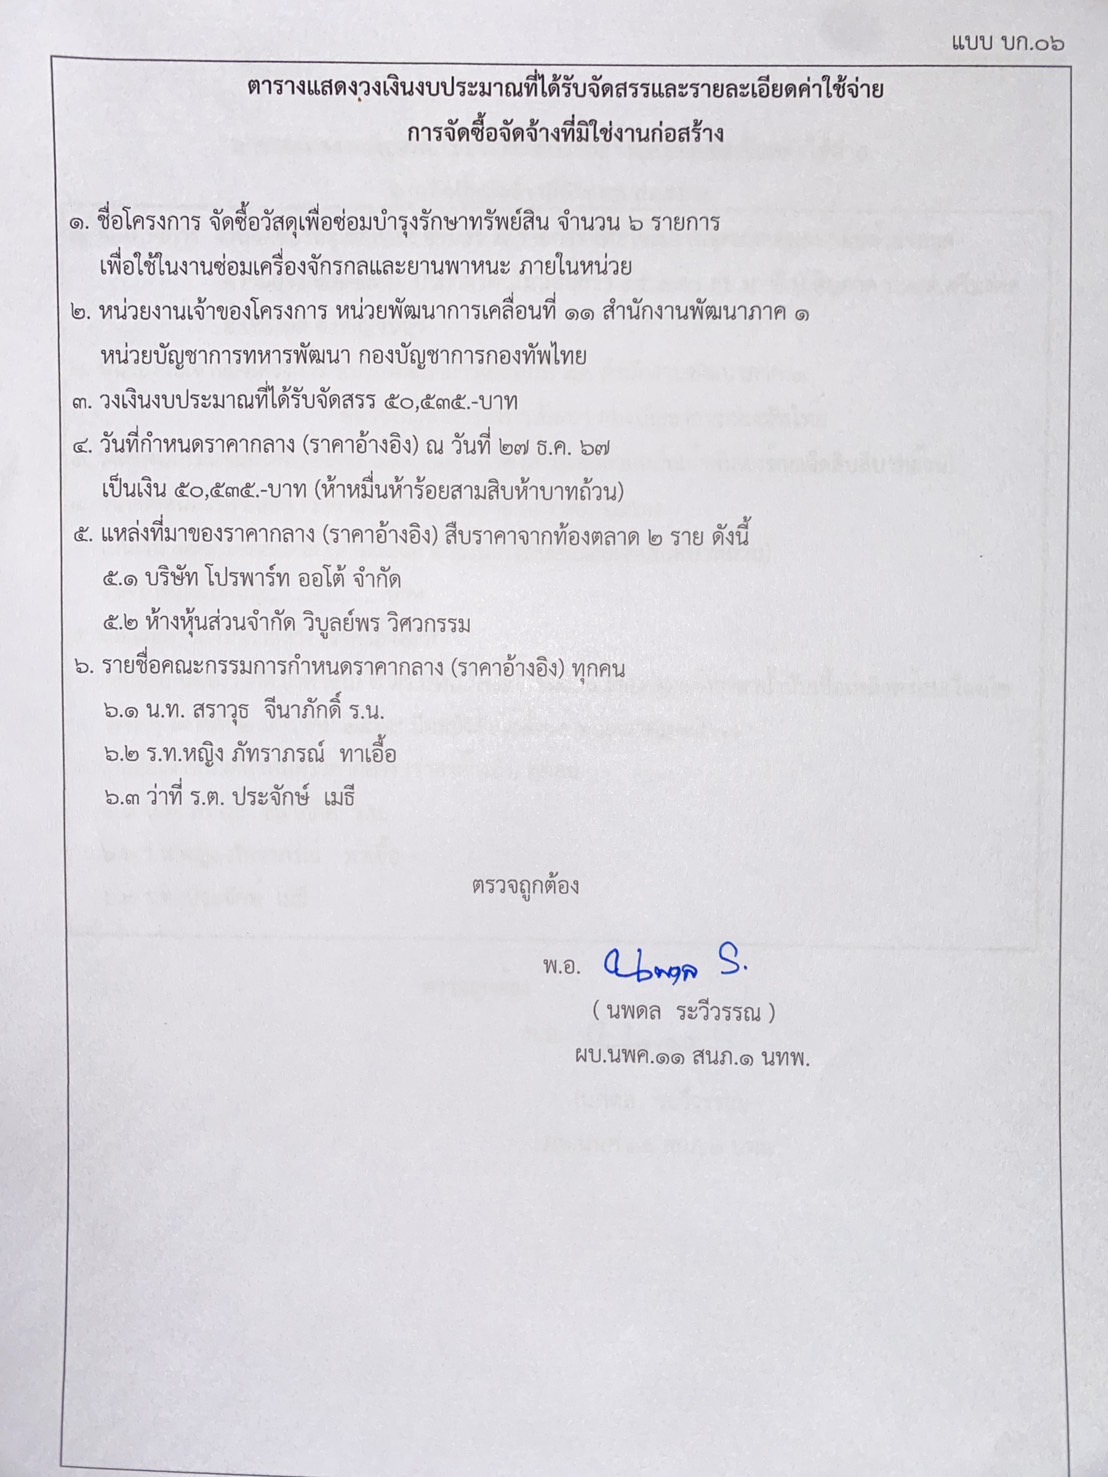 แบบ บก.๐๖
ตารางแสดงวงเงินงบประมาณที่ได้รับจัดสรรและรายละเอียดค่าใช้จ่าย
การจัดซื้อจัดจ้างที่มิใช่งานก่อสร้าง
๑. ชื่อโครงการ จัดซื้อวัสดุเพื่อซ่อมบำรุงรักษาทรัพย์สิน จำนวน ๖ รายการ
เพื่อใช้ในงานซ่อมเครื่องจักรกลและยานพาหนะ ภายในหน่วย
๒. หน่วยงานเจ้าของโครงการ หน่วยพัฒนาการเคลื่อนที่ ๑๑ สำนักงานพัฒนาภาค ๑
หน่วยบัญชาการทหารพัฒนา กองบัญชาการกองทัพไทย
๓. วงเงินงบประมาณที่ได้รับจัดสรร ๕๐,๕๓๕.-บาท
๔. วันที่กำหนดราคากลาง (ราคาอ้างอิง) ณ วันที่ ๒๗ ธ.ค. ๖๗
เป็นเงิน ๕๐,๕๓๕.-บาท (ห้าหมื่นห้าร้อยสามสิบห้าบาทถ้วน)
๕. แหล่งที่มาของราคากลาง (ราคาอ้างอิง) สืบราคาจากท้องตลาด ๒ ราย ดังนี้
๕.๑ บริษัท โปรพาร์ท ออโต้ จำกัด
๕.๒ ห้างหุ้นส่วนจำกัด วิบูลย์พร วิศวกรรม
๖. รายชื่อคณะกรรมการกำหนดราคากลาง (ราคาอ้างอิง) ทุกคน
๖.๑ น.ท. สราวุธ จีนาภักดิ์ ร.น.
๖.๒ ร.ท.หญิง ภัทราภรณ์ ทาเอื้อ
๖.๓ ว่าที่ ร.ต. ประจักษ์ เมธี
ตรวจถูกต้อง
พ.อ. นพดล S.
( นพดล ระวีวรรณ )
ผบ.นพค.๑๑ สนภ.๑ นทพ.